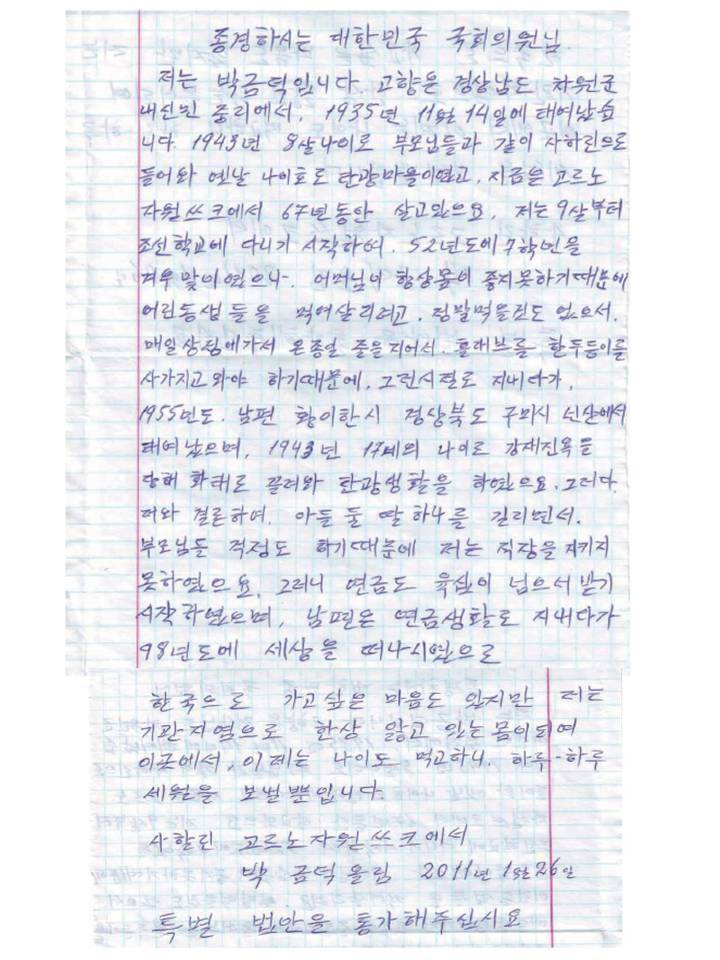 종경하시는 대한민국 국회의원님
저는 박금덕입니다. 고향은 경상남도 차원군
내신면 중리에서, 1935년 11월 14일에 태여났습
니다. 1943년 8살나이로 부모님들과 같이 사하린으로
들어와 옛날 나이호로 탄광마을이였고, 지금은 고르노
자원쓰크에서 67년동안 살고있으요, 저는 9살부터
조선학교에 다니기 시작하여. 52년도에 7학년을
겨우 맞이였으나. 어머님이 항상몸이 좋지못하기때문에
어린동생들을 먹여살리려고. 정말먹을것도 없으서.
매일상점에가서 온종일 줄을지어서. 흘래브를 한두등이를
사가지고와야 하기때문에. 그런시절로 지내다가.
1955년도. 남편 황이한시 경상북도 구미시 선산에서
태여났으며, 1943년 17세의 나이로 강재진용을
당해 화태로 끌려와 탄광생활을 하였으요. 그러다.
저와 결혼하여. 아들 둘 딸 하나를 길리면서.
부모님들 걱정도 하기때문에 저는 직장을 지키지
못하였으요. 그러니 연금도 육십이 넘으서 받기
시작하였으며, 남편은 연금생활로 지내다가
98년도에 세상을 떠나시였으로
한국으로 가고싶은 마음도 있지만 저는
기관지염으로 한상 앓고 있는몸이되여
이곳에서, 이제는 나이도 먹고하니. 하루-하루
세월을 보낼뿐입니다.
사할린 고르노자원쓰크에서
박 금덕올림 2011년 1월 26일
특별 법안을 통가해주십시요